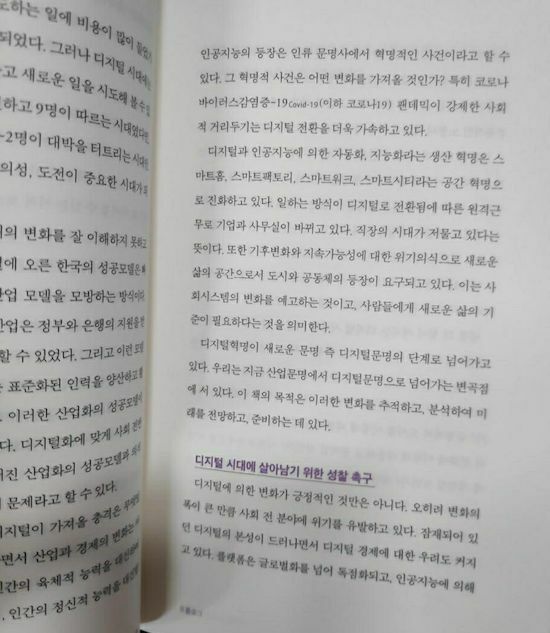 도하는 일에 비용이 많이 들었기
되었다. 그러나 디지털 시대에는
고 새로운 일을 시도해 볼 수 있
하고 9명이 따르는 시대였다면
~2명이 대박을 터트리는 시대
의성, 도전이 중요한 시대가 되
의 변화를 잘 이해하지 못하고
에 오른 한국의 성공모델은
산업 모델을 모방하는 방식이다
산업은 정부와 은행의 지원을
할 수 있었다. 그리고 이런 모델
는 표준화된 인력을 양산하고
이러한 산업화의 성공모델이
다. 디지털화에 맞게 사회 전반
어진 산업화의 성공모델과
문제라고 할 수 있다.
디지털이 가져올 충격은
면서 산업과 경제의 변화는
인간의 육체적 능력을
, 인간의 정신적 능력을
인공지능의 등장은 인류 문명사에서 혁명적인 사건이라고 할 수
있다. 그 혁명적 사건은 어떤 변화를 가져올 것인가? 특히 코로나
바이러스감염증-19Covid-19(이하 코로나19) 팬데믹이 강제한 사회
적 거리두기는 디지털 전환을 더욱 가속하고 있다.
디지털과 인공지능에 의한 자동화, 지능화라는 생산 혁명은 스
마트홈, 스마트팩토리, 스마트워크, 스마트시티라는 공간 혁명으
로 진화하고 있다. 일하는 방식이 디지털로 전환됨에 따른 원격근
무로 기업과 사무실이 바뀌고 있다. 직장의 시대가 저물고 있다는
뜻이다. 또한 기후변화와 지속가능성에 대한 위기의식으로 새로운
삶의 공간으로서 도시와 공동체의 등장이 요구되고 있다. 이는 사
회시스템의 변화를 예고하는 것이고, 사람들에게 새로운 삶의 기
준이 필요하다는 것을 의미한다.
디지털혁명이 새로운 문명 즉 디지털문명의 단계로 넘어가고
있다. 우리는 지금 산업문명에서 디지털문명으로 넘어가는 변곡점
에 서 있다. 이 책의 목적은 이러한 변화를 추적하고, 분석하여 미
래를 전망하고, 준비하는 데 있다.
디지털 시대에 살아남기 위한 성찰 촉구
디지털에 의한 변화가 긍정적인 것만은 아니다. 오히려 변화의
폭이 큰 만큼 사회 전 분야에 위기를 유발하고 있다. 잠재되어 있
던 디지털의 본성이 드러나면서 디지털 경제에 대한 우려도 커지
고 있다. 플랫폼은 글로벌화를 넘어 독점화되고, 인공지능에 의해